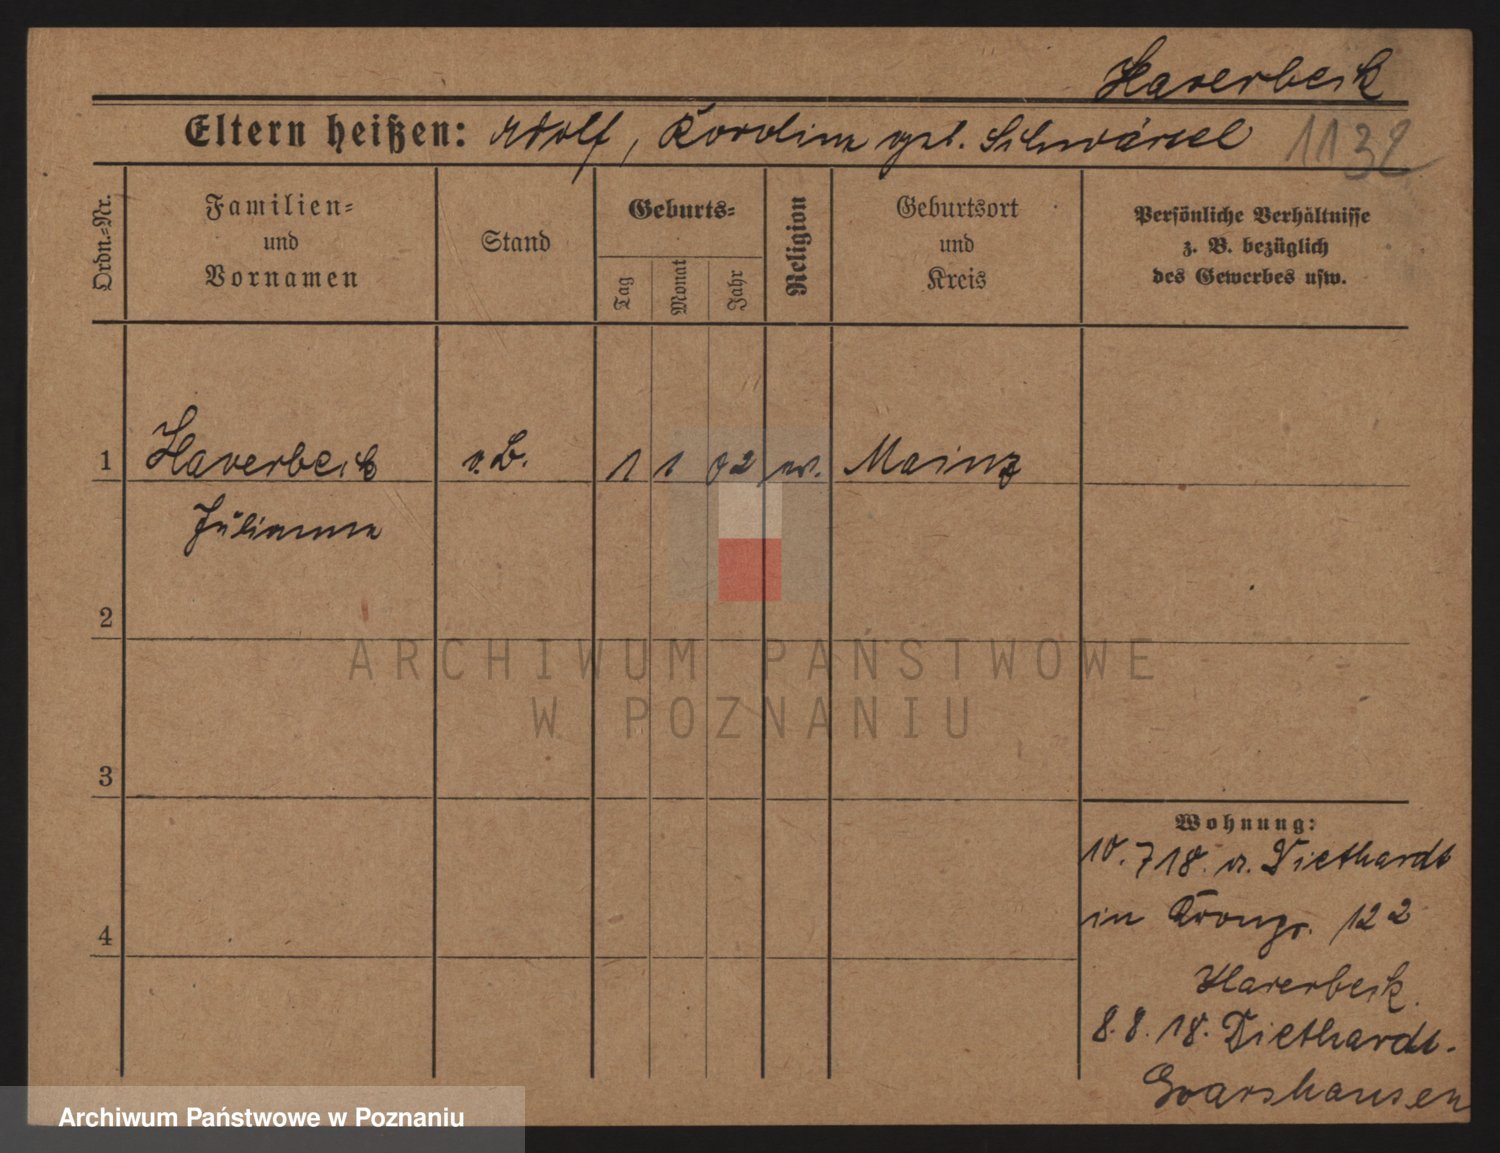 Haverbeck
Eltern heißen: Adolf, Karolina geb. Schwärzel 1132
Ordn.=Nr.
Familien=
und
Vornamen
Stand
Geburts=
Tag
Monat
Jahr
Religion
Geburtsort
und
Kreis
Persönliche Verhältnisse
z. B. bezüglich
des Gewerbes usw.
1 Haverbeck o.B. 1 1 02 ev. Mainz
Julianna
2
ARCHIWUM PAŃSTWOWE
W POZNANIU
3
Wohnung:
10.7 18. v. Diethardt
in Kronpr. 122
4
Haverbeck.
8.8.18. Diethardt.
Goarshausen
Archiwum Państwowe w Poznaniu